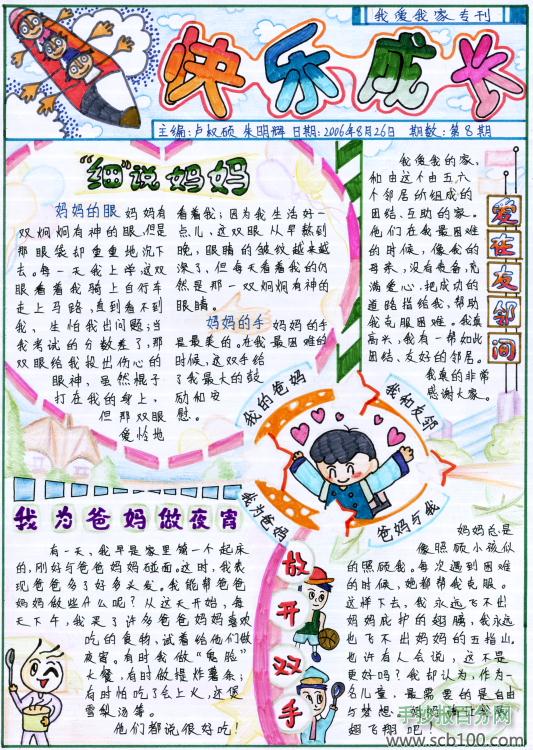 我爱我家专刊
快乐成长
主编:卢权硕 朱明辉 日期:2006年8月26日 期数:第8期
“细”说妈妈
妈妈的眼 妈妈有
双炯炯有神的眼,但是
那眼袋却重重地沉下
去。每一天我上学,这双
眼看着我骑上自行车
走上马路,直到看不到
我,生怕我出问题;当
我考试的分数差了,那
双眼给我投出伤心的
眼神,虽然棍子
打在我的身上,
但那双眼
爱怜地
看着我;因为我生活好一
点儿,这双眼从早熬到
晚,眼睛的皱纹越来越
深了,但每天看着我的仍
然是那一双炯炯有神的
眼睛。
妈妈的手 妈妈的手
是最美的。在我最困难的
时候,这双手给
了我最大的鼓
励和安
慰。
爱在友邻间
我爱我的家,
和由这个由五六
个邻居所组成的
团结、互助的家。
他们在我最困难
的时候,像我的
母亲,没有责备,充
满爱心,把成功的
道路指给我,帮助
我克服困难。我真
高兴,我有一帮如此
团结、友好的邻居。
我真的非常
感谢大家。
我的爸妈
我和友邻
我为爸妈
爸妈与我
我为爸妈做夜宵
有一天,我早是家里第一个起床
的,刚好与爸爸妈妈碰面。这时,我发
现爸爸多了好多头发。我能帮爸爸
妈妈做些什么呢?从这天开始,每
天下午,我买了许多爸爸妈妈喜欢
吃的食物,试着给他们做
夜宵。有时我做“鬼脸”
大餐,有时做撞炸薯条;
有时怕吃了会上火,还煲
雪梨汤等。
他们都说很好吃!
放开双手
妈妈总是
像照顾小孩似
的照顾我。每次遇到困难
的时候,她都帮我克服。
这样下去,我永远飞不出
妈妈庇护的翅膀,我永远
也飞不出妈妈的五指山。
也许有人会说,这不是
更好吗?我却认为,作为一
名儿童,最需要的是自由
与梦想。妈妈
翅飞翔吧!
手抄报百分网
www.scb100.com